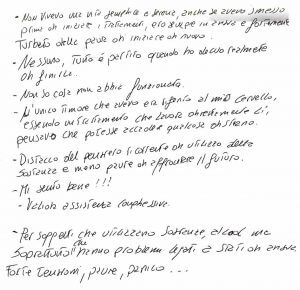 - Non vivevo una vita semplice e serena, anche se avevo smesso
prima di iniziare i trattamenti, ero sempre in ansia e fortemente
turbato dalle paure di iniziare di nuovo.
- Nessuno, tutto è partito quando ho deciso realmente
di finirla.
- Non so cosa non abbia funzionato.
- L'unico timore che avevo era rifarsi al mio cervello,
essendo un trattamento che lavora direttamente lì,
pensavo che potesse accadere qualcosa di strano.
- Distacco dal pensiero ricorrente di utilizzo della
sostanza e meno paura di affrontare il futuro.
- Mi sento bene!!!
- assistenza complessiva.
- Per soggetti che utilizzano sostanze, alcool ma
soprattutto che hanno problemi legati a stati di ansia,
forte tensioni, paure, panico...